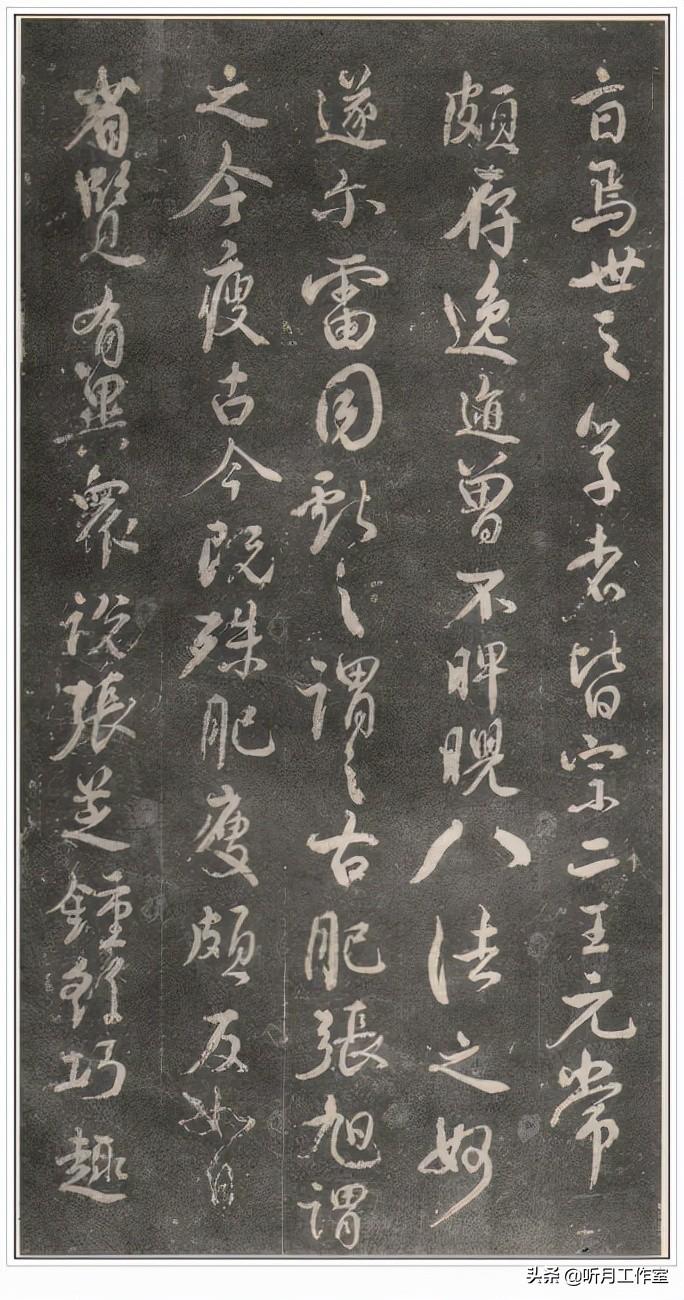 言焉世之学者皆宗二王元常
頗存逸迹曾不睥睨八法之妙
遂尔雷同献之謂之古肥張旭謂
之今瘦古今既殊肥瘦頗反如自
省覽有異衆說張芝鍾繇巧趣
头条 @听月工作室